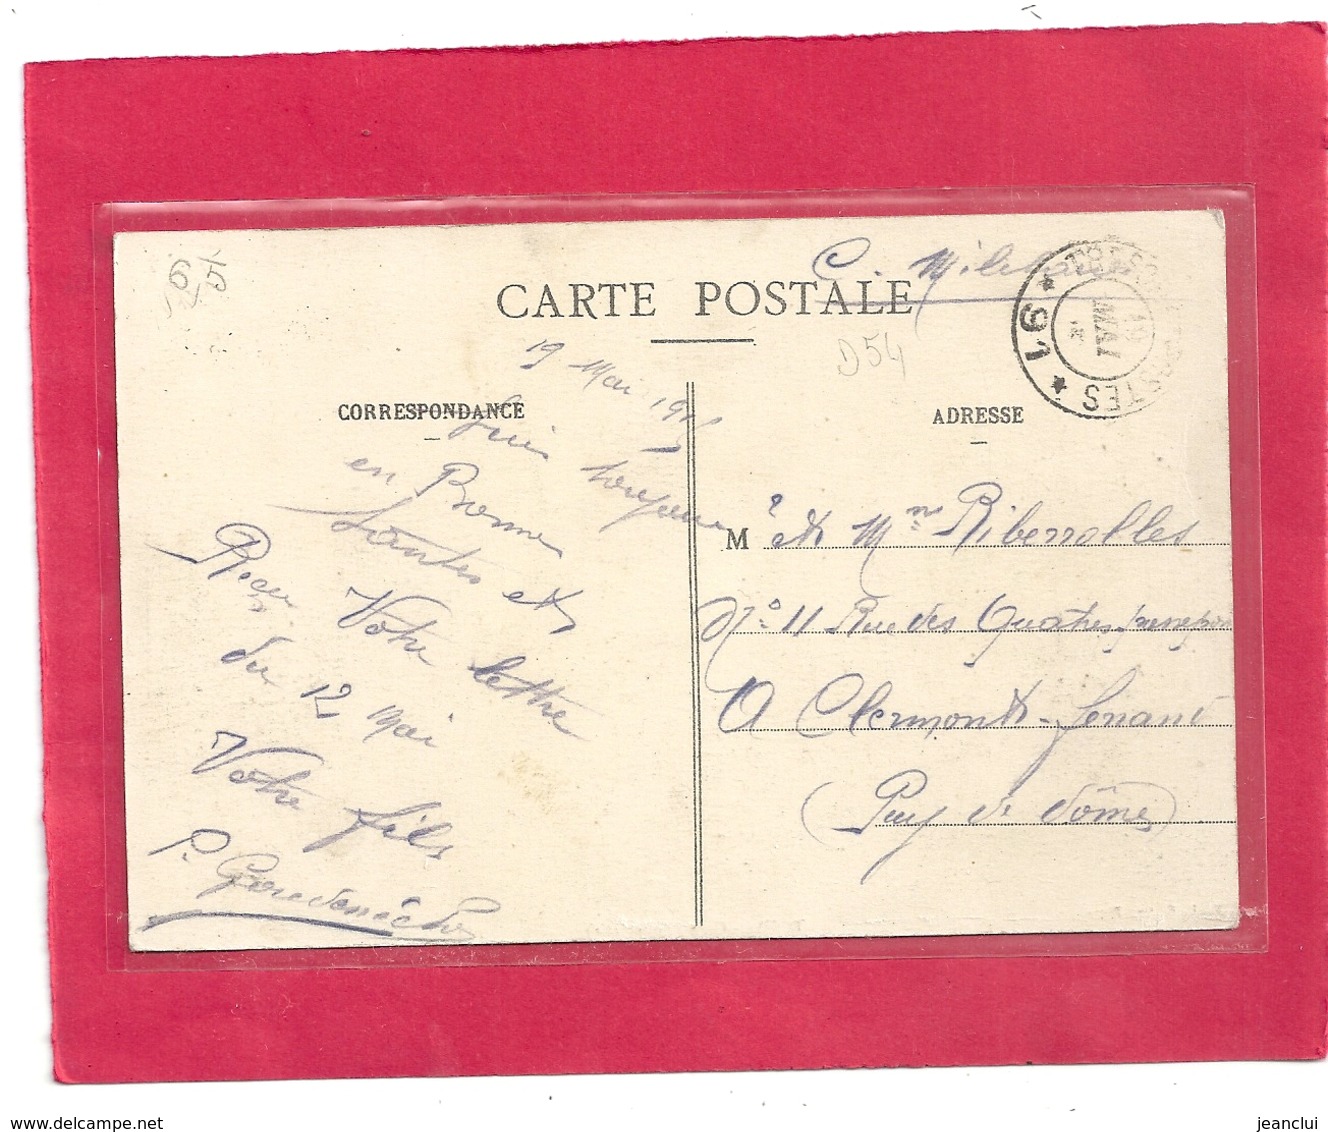 65
C. Militaire
CARTE POSTALE
D54
TRESOR ET POSTES
* 91 *
19
MAI
CORRESPONDANCE
ADRESSE
19 Mai 191
suis toujours
en Bonne
Santés et
Reçu Votre lettre
du 12 Mai
Votre fils
P.
M r et Mm Riberrolles
No 11 Rue des Quatres
A Clermont-ferrand
(Puy de Dôme)
delcampe.net
jeanclui